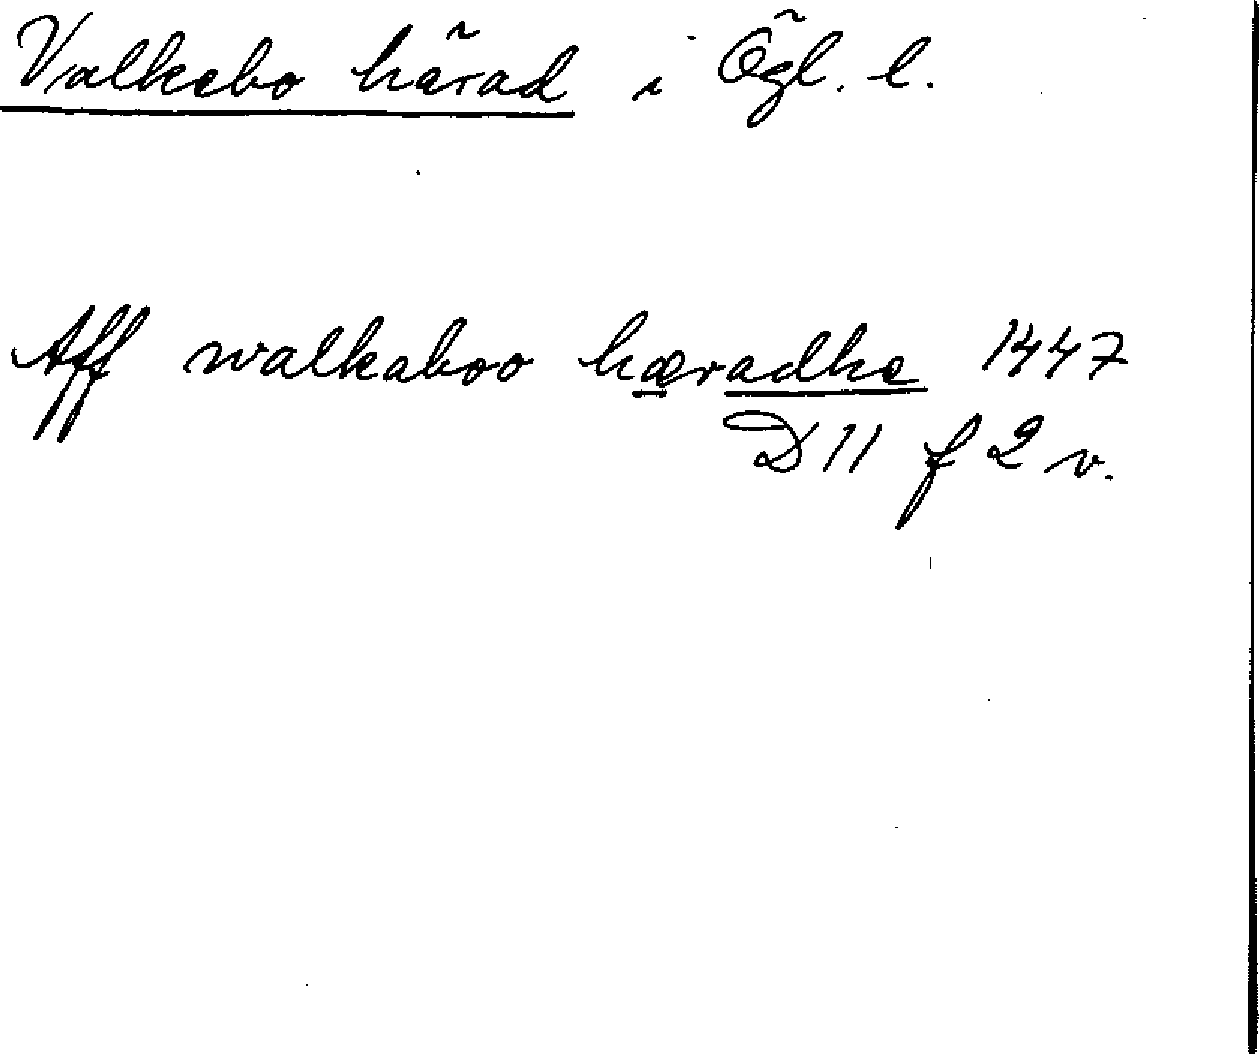 Valkebo härad i Ögl. l.
Aff walkaboo hæradhe 1447
D 11 f 2 v.